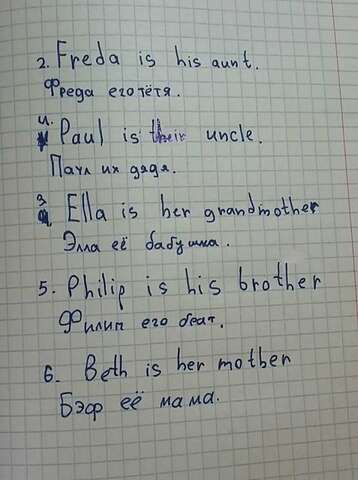 2. Freda is his aunt.
Фреда его тётя.
4. Paul is their uncle.
Паул их дядя.
3 Ella is her grandmother
Элла её бабушка.
5. Philip is his brother
Филип его брат.
6. Beth is her mother
Бэф её мама.